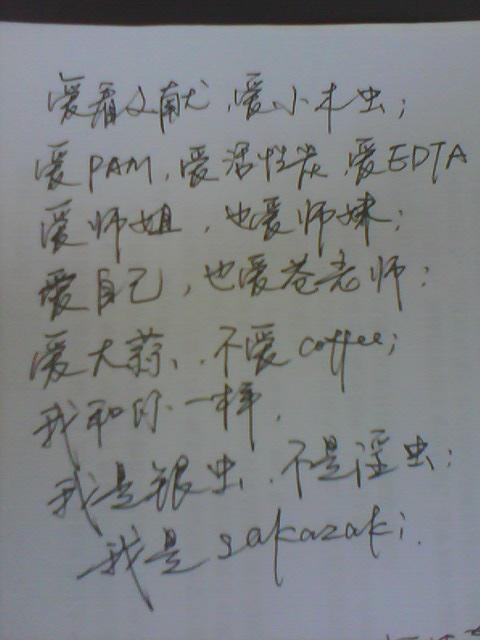 爱看文献,爱小木虫;
爱PAM,爱活性炭,爱EDTA
爱师姐,也爱师妹;
爱自己,也爱苍老师;
爱大蒜,不爱coffee;
我和你一样,
我是银虫,不是淫虫;
我是sakazaki.